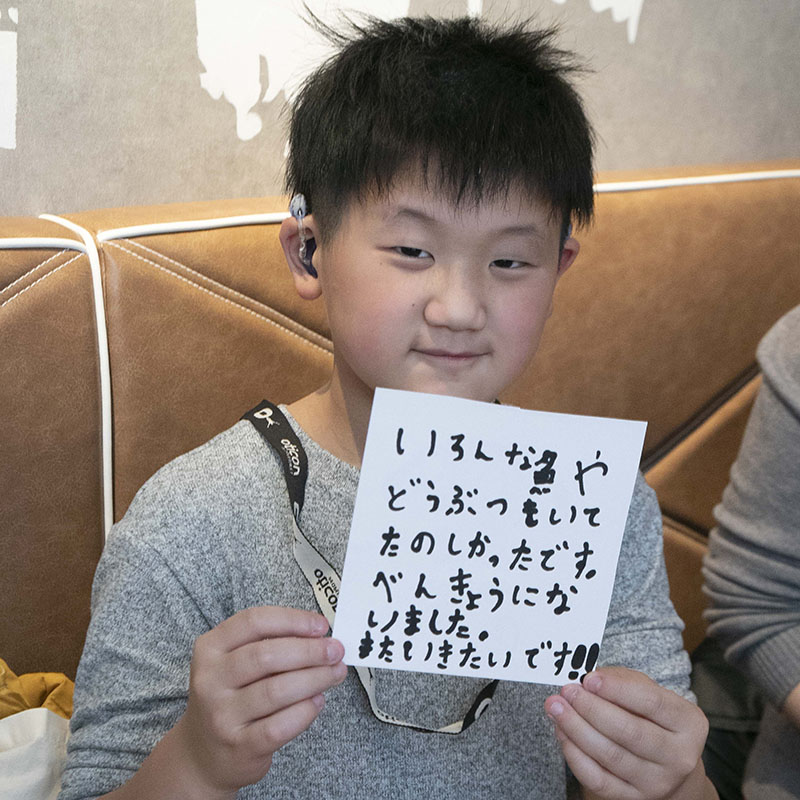 いろんな魚や
どうぶつもいて
たのしかったです。
べんきょうにな
いました。
またいきたいです!!
oticon
oticon